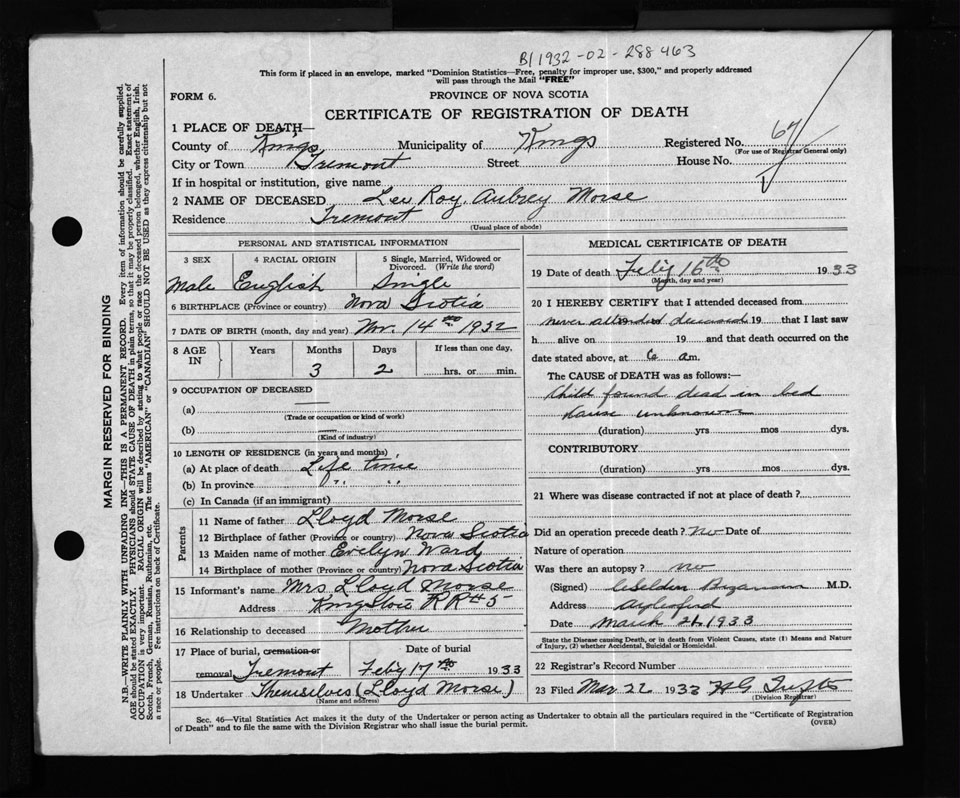 B/1932-02-288463
This form if placed in an envelope, marked "Dominion Statistics—Free, penalty for improper use, $300," and properly addressed
will pass through the Mail "FREE"
FORM 6.
PROVINCE OF NOVA SCOTIA
CERTIFICATE OF REGISTRATION OF DEATH
1 PLACE OF DEATH—
County of Kings Municipality of Kings Registered No. 67
(For use of Registrar General only)
City or Town Tremont Street House No.
If in hospital or institution, give name
2 NAME OF DECEASED Lee Roy Aubrey Morse
Residence Tremont
(Usual place of abode)
MARGIN RESERVED FOR BINDING
N.B.—WRITE PLAINLY WITH UNFADING INK—THIS IS A PERMANENT RECORD. Every item of information should be carefully supplied.
AGE should be stated EXACTLY. PHYSICIANS should STATE CAUSE OF DEATH in plain terms, so that it may be properly classified. Exact statement of
OCCUPATION is very important. RACIAL ORIGIN will be described by stating to what people or race the deceased person belonged, whether English, Irish,
Scotch, French, German, Russian, Ruthenian, etc. The terms "AMERICAN" or "CANADIAN" SHOULD NOT BE USED as they express citizenship but not
a race or people. Fee instructions on back of Certificate.
PERSONAL AND STATISTICAL INFORMATION
3 SEX 4 RACIAL ORIGIN 5 Single, Married, Widowed or
Divorced. (Write the word)
Male English Single
6 BIRTHPLACE (Province or country) Nova Scotia
7 DATE OF BIRTH (month, day and year) Nov. 14th 1932
8 AGE IN Years Months Days If less than one day,
3 2 hrs. or min.
9 OCCUPATION OF DECEASED
(a)
(Trade or occupation or kind of work)
(b)
(Kind of industry)
10 LENGTH OF RESIDENCE (in years and months)
(a) At place of death Life time
(b) In province " "
(c) In Canada (if an immigrant)
Parents
11 Name of father Lloyd Morse
12 Birthplace of father (Province or country) Nova Scotia
13 Maiden name of mother Evelyn Ward
14 Birthplace of mother (Province or country) Nova Scotia
15 Informant's name Mrs Lloyd Morse
Address Kingston RR#5
16 Relationship to deceased Mother
17 Place of burial, cremation or Date of burial
removal Tremont Feby 17th 1933
18 Undertaker Themselves (Lloyd Morse)
(Name and address)
MEDICAL CERTIFICATE OF DEATH
19 Date of death Feby 16th 1933
(Month, day and year)
20 I HEREBY CERTIFY that I attended deceased from
never attended deceased 19 that I last saw
h alive on 19 and that death occurred on the
date stated above, at 6 am.
The CAUSE of DEATH was as follows:—
Child found dead in bed
cause unknown
(duration) yrs mos dys.
CONTRIBUTORY
(duration) yrs mos dys.
21 Where was disease contracted if not at place of death?
Did an operation precede death? No Date of
Nature of operation
Was there an autopsy? no
(Signed) M.D.
Address Aylesford
Date March 21 1933
State the Disease causing Death, or in death from Violent Causes, state (1) Means and Nature
of Injury, (2) whether Accidental, Suicidal or Homicidal.
22 Registrar's Record Number
23 Filed Mar 22 1933 HG Tufts
(Division Registrar)
Sec. 46—Vital Statistics Act makes it the duty of the Undertaker or person acting as Undertaker to obtain all the particulars required in the "Certificate of Registration
of Death" and to file the same with the Division Registrar who shall issue the burial permit.
(OVER)